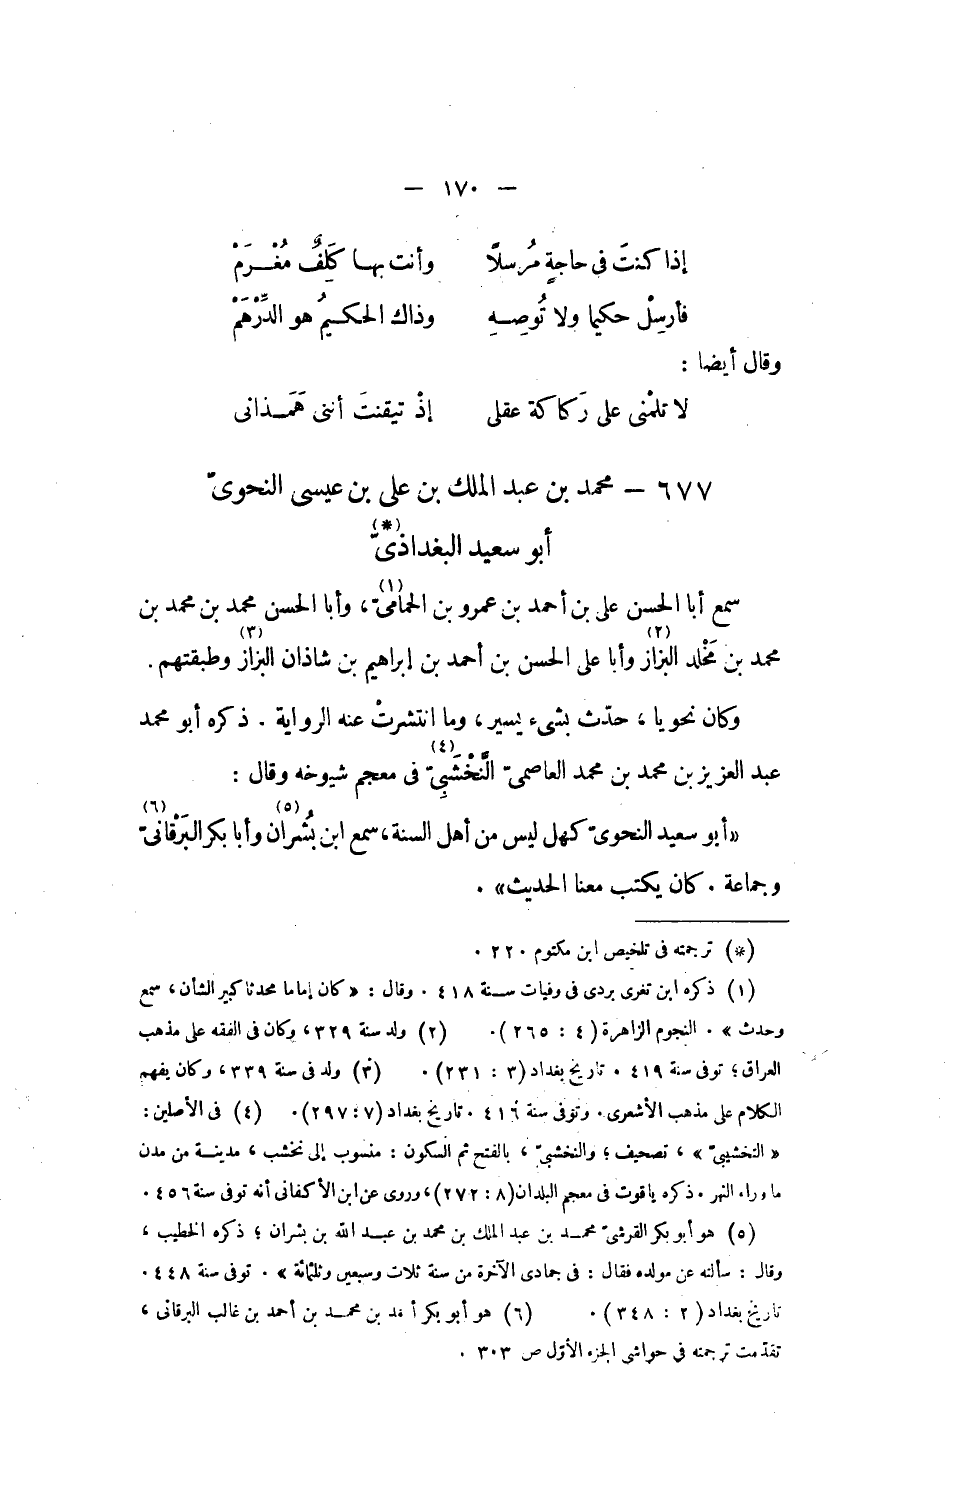 — ١٧٠ —
إذا كنتَ فى حاجةٍ مُرسلًا وأنت بها كَلِفٌ مُغْرَمْ
فأرسِلْ حكيما ولا تُوصِهِ وذاك الحكيمُ هو الدِّرْهَمْ
وقال أيضا :
لا تلمْنى على رَكاكة عقلى إذْ تيقنتَ أننى هَمَذانى
٦٧٧ — محمد بن عبد الملك بن على بن عيسى النحوىّ
أبو سعيد البغداذىّ (*)
سمع أبا الحسن على بن أحمد بن عمرو بن الحمامىّ (١)، وأبا الحسن محمد بن محمد بن
محمد بن مَخْلد البزاز (٢) وأبا على الحسن بن أحمد بن إبراهيم بن شاذان البزاز (٣) وطبقتهم .
وكان نحويا ، حدّث بشىء يسير ، وما انتشرتْ عنه الرواية . ذكره أبو محمد
عبد العزيز بن محمد بن محمد العاصمىّ النَّخْشَبِىّ (٤) فى معجم شيوخه وقال :
«أبو سعيد النحوىّ كهل ليس من أهل السنة ، سمع ابن بُشْران (٥) وأبا بكر البَرْقانىّ (٦)
وجماعة . كان يكتب معنا الحديث» .
(*) ترجمته فى تلخيص ابن مكتوم ٢٢٠ .
(١) ذكره ابن تغرى بردى فى وفيات سنة ٤١٨ . وقال : «كان إماما محدثا كبير الشأن ، سمع
وحدث » . النجوم الزاهرة ( ٤ : ٢٦٥ ) . (٢) ولد سنة ٣٢٩ ، وكان فى الفقه على مذهب
العراق ؛ توفى سنة ٤١٩ . تاريخ بغداد ( ٣ : ٢٣١ ) . (٣) ولد فى سنة ٣٣٩ ، وكان يفهم
الكلام على مذهب الأشعرى . وتوفى سنة ٤١٦ . تاريخ بغداد (٧ : ٢٩٧) . (٤) فى الأصلين :
« التخشيبىّ » ، تصحيف ؛ والنخشبىّ ، بالفتح ثم السكون : منسوب إلى نخشب ، مدينة من مدن
ما وراء النهر . ذكره ياقوت فى معجم البلدان (٨ : ٢٧٢) ، وروى عن ابن الأكفانى أنه توفى سنة ٤٥٦ .
(٥) هو أبو بكر القرشىّ محمد بن عبد الملك بن محمد بن عبد الله بن بشران ؛ ذكره الخطيب ،
وقال : سألته عن مولده فقال : فى جمادى الآخرة من سنة ثلاث وسبعين وثلثمائة » . توفى سنة ٤٤٨ .
تاريخ بغداد ( ٢ : ٣٤٨ ) . (٦) هو أبو بكر أحمد بن محمد بن أحمد بن غالب البرقانى ،
تقدّمت ترجمته فى حواشى الجزء الأوّل ص ٣٠٣ .